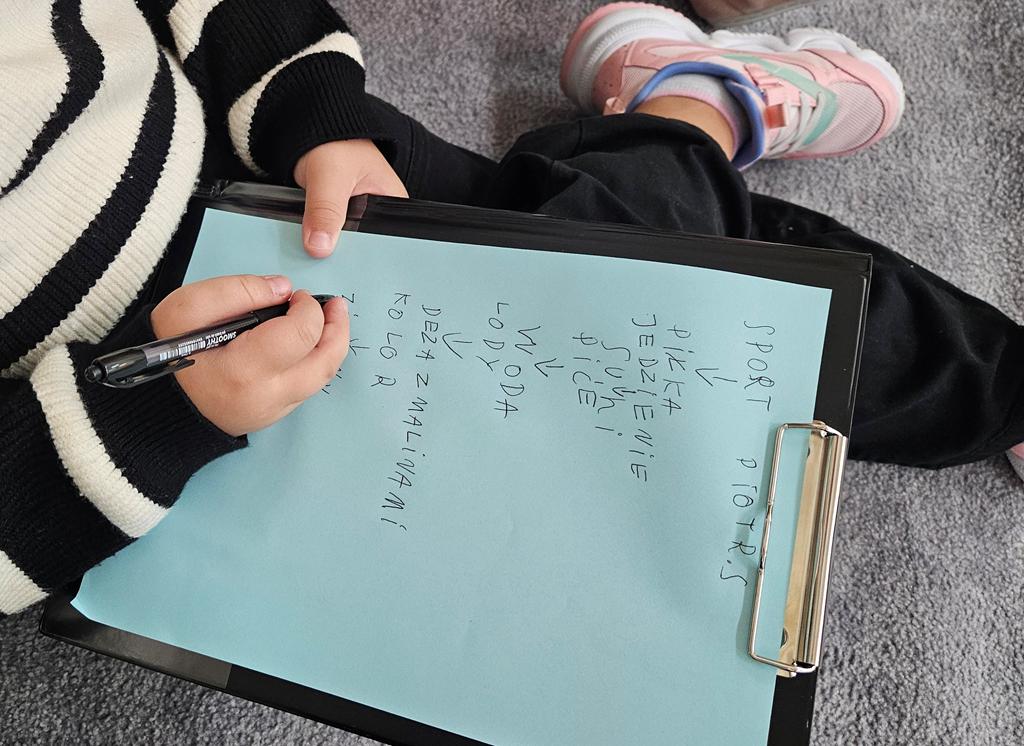 SPORT PIOTR.S
↓
PIŁKA
JEDZIENIE
SUhi
PiCE
↓
WODA
LODY
↓
DEZA ZMALINAMi
KOLOR
↓
SMOOTHY